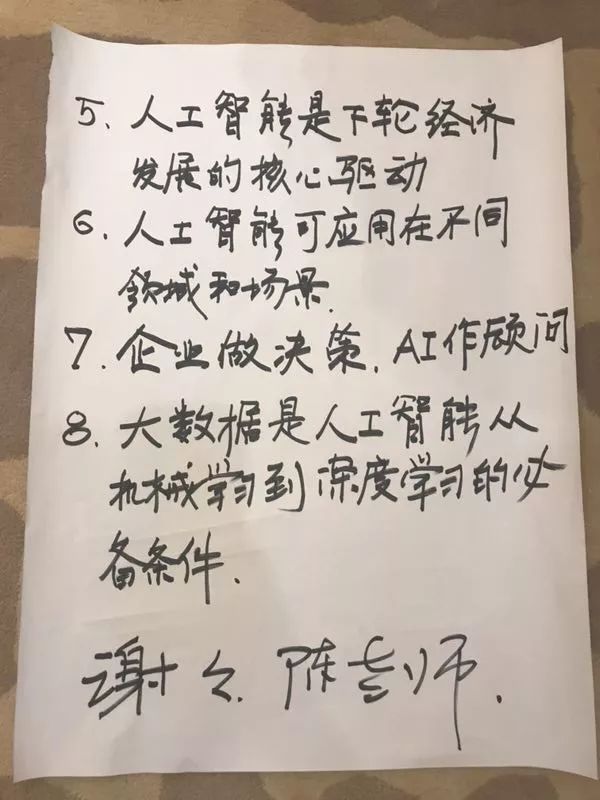 5、人工智能是下轮经济
发展的核心驱动
6、人工智能可应用在不同
领域和场景.
7、企业做决策、AI作顾问
8、大数据是人工智能从
机械学习到深度学习的必
备条件.
谢々陈老师.